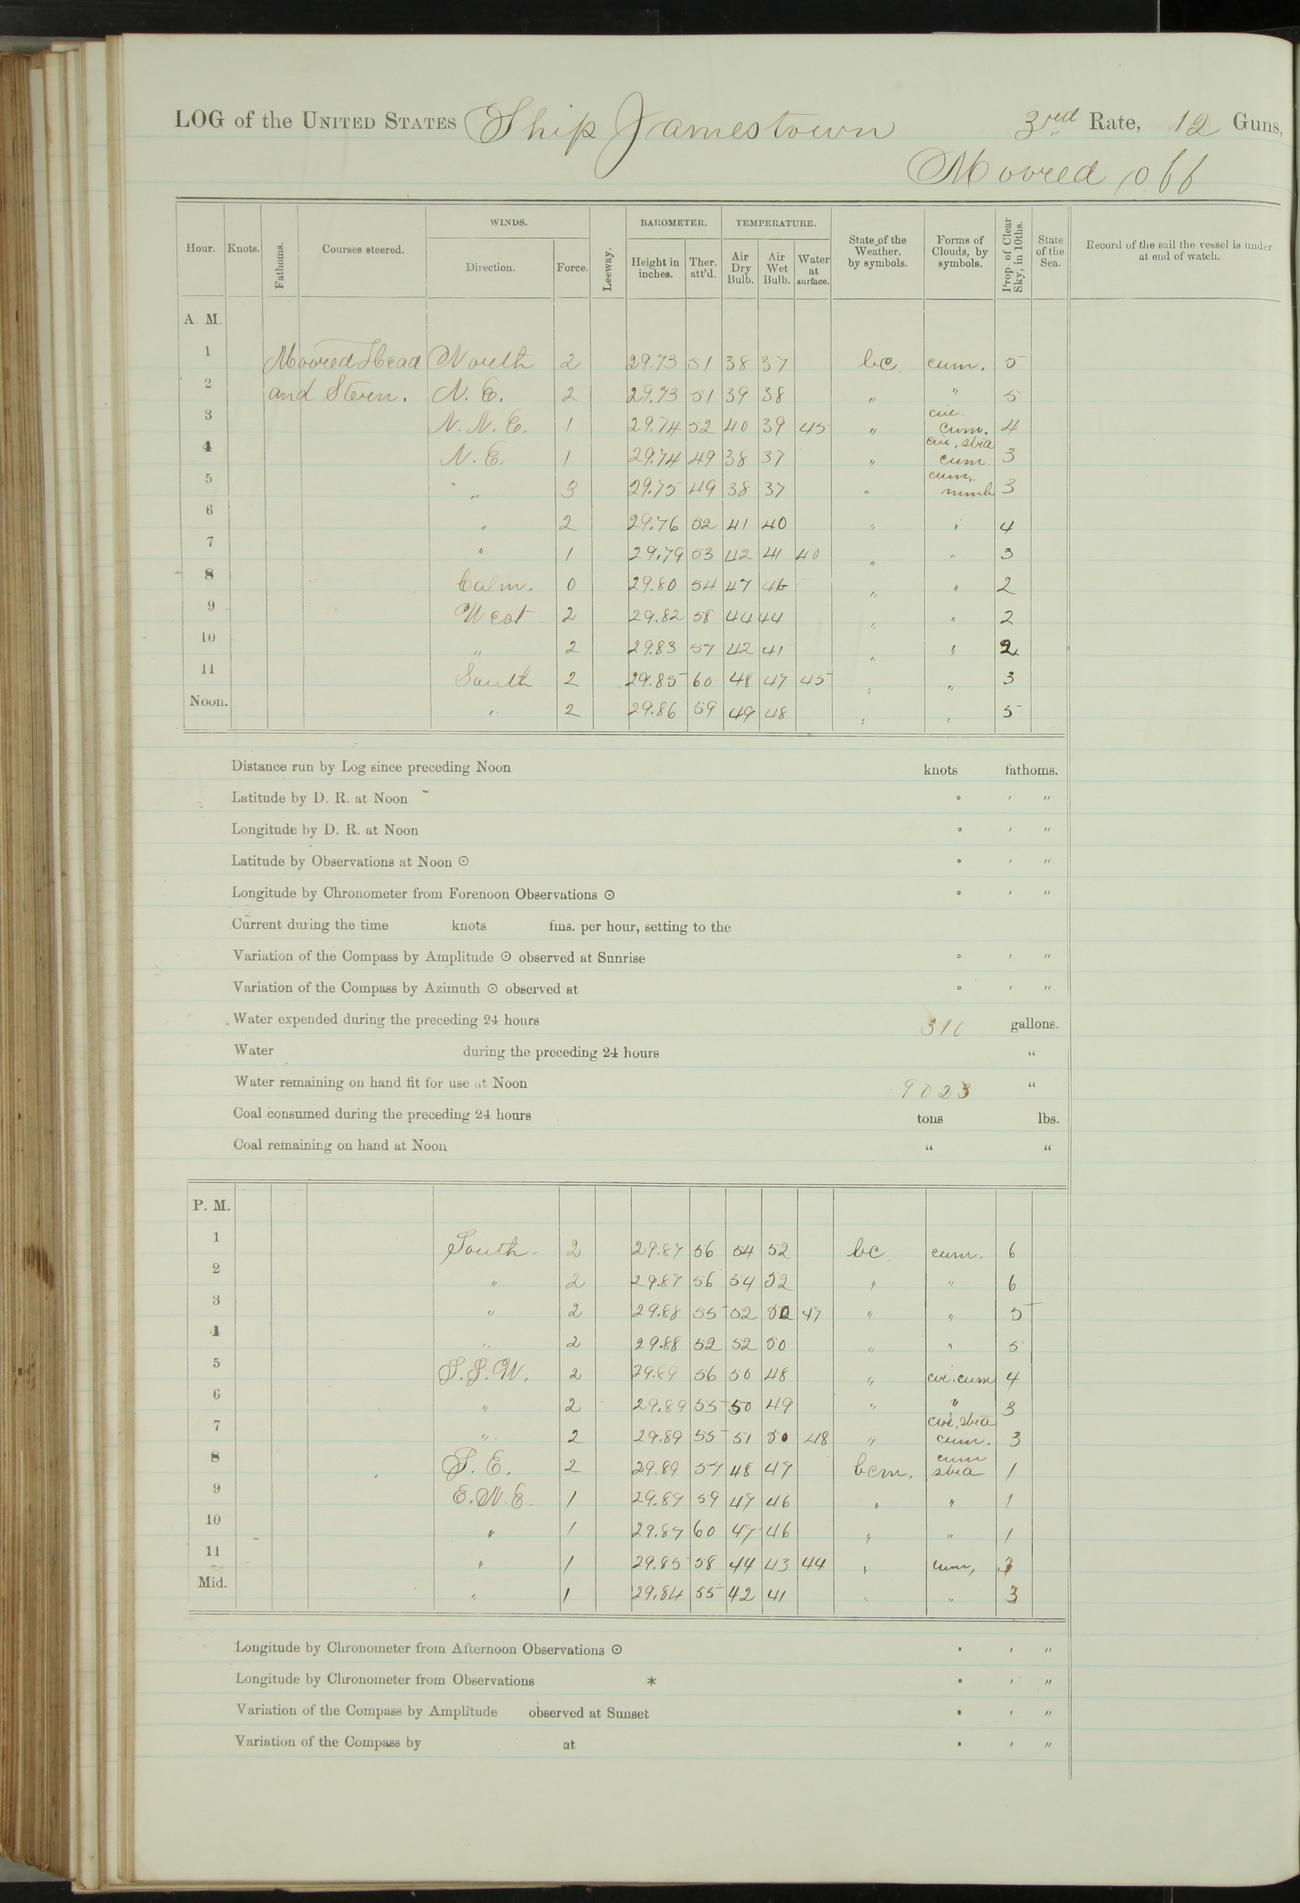 LOG of the UNITED STATES Ship Jamestown 3rd Rate, 12 Guns,
Moored off
Hour. Knots. Fathoms. Courses steered. WINDS. Direction. Force. Leeway. BAROMETER. Height in inches. Ther. att'd. TEMPERATURE. Air Dry Bulb. Air Wet Bulb. Water at surface. State of the Weather, by symbols. Forms of Clouds, by symbols. Prop. of Clear Sky, in 10ths. State of the Sea. Record of the sail the vessel is under at end of watch.
A. M.
1 Moored Head North 2 29.73 51 38 37 bc cum. 5
2 and Stern. N. E. 2 29.73 51 39 38 " " 5
3 N. N. E. 1 29.74 52 40 39 45 " cir. cum. 4
4 N. E. 1 29.74 49 38 37 " cir. stra cum. 3
5 " 3 29.75 49 38 37 " cum. nimb 3
6 " 2 29.76 52 41 40 " " 4
7 " 1 29.79 53 42 41 40 " " 3
8 Calm. 0 29.80 54 47 46 " " 2
9 West 2 29.82 58 44 44 " " 2
10 " 2 29.83 57 42 41 " " 2
11 South 2 29.85 60 48 47 45 " " 3
Noon. " 2 29.86 59 49 48 " " 5
Distance run by Log since preceding Noon knots fathoms.
Latitude by D. R. at Noon ° ' "
Longitude by D. R. at Noon ° ' "
Latitude by Observations at Noon ☉ ° ' "
Longitude by Chronometer from Forenoon Observations ☉ ° ' "
Current during the time knots fms. per hour, setting to the
Variation of the Compass by Amplitude ☉ observed at Sunrise ° ' "
Variation of the Compass by Azimuth ☉ observed at ° ' "
Water expended during the preceding 24 hours gallons.
Water during the preceding 24 hours "
Water remaining on hand fit for use at Noon 9023 "
Coal consumed during the preceding 24 hours tons lbs.
Coal remaining on hand at Noon " "
P. M.
1 South 2 29.87 56 54 52 bc cum. 6
2 " 2 29.87 56 54 52 " " 6
3 " 2 29.88 55 52 50 47 " " 5
4 " 2 29.88 52 52 50 " " 5
5 S.S.W. 2 29.89 56 50 48 " cir. cum 4
6 " 2 29.89 55 50 49 " " 3
7 " 2 29.89 55 51 50 48 " cir. stra cum. 3
8 S. E. 2 29.89 57 48 47 bcm. cum stra 1
9 E.N.E. 1 29.87 59 47 46 " " 1
10 " 1 29.87 60 47 46 " " 1
11 " 1 29.85 58 44 43 44 " cum, 3
Mid. " 1 29.84 55 42 41 " " 3
Longitude by Chronometer from Afternoon Observations ☉ ° ' "
Longitude by Chronometer from Observations * ° ' "
Variation of the Compass by Amplitude observed at Sunset ° ' "
Variation of the Compass by at ° ' "